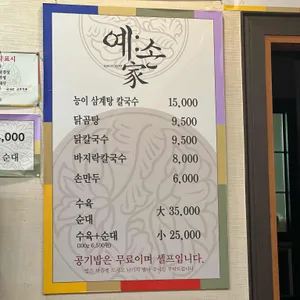 표시
,000
순대
예손
家
능이 삼계탕 칼국수 15,000
닭곰탕 9,500
닭칼국수 9,500
바지락칼국수 8,000
손만두 6,000
수육
순대
수육+순대
大 35,000
小 25,000
(300g 6,500원)
공기밥은 무료이며 셀프입니다.